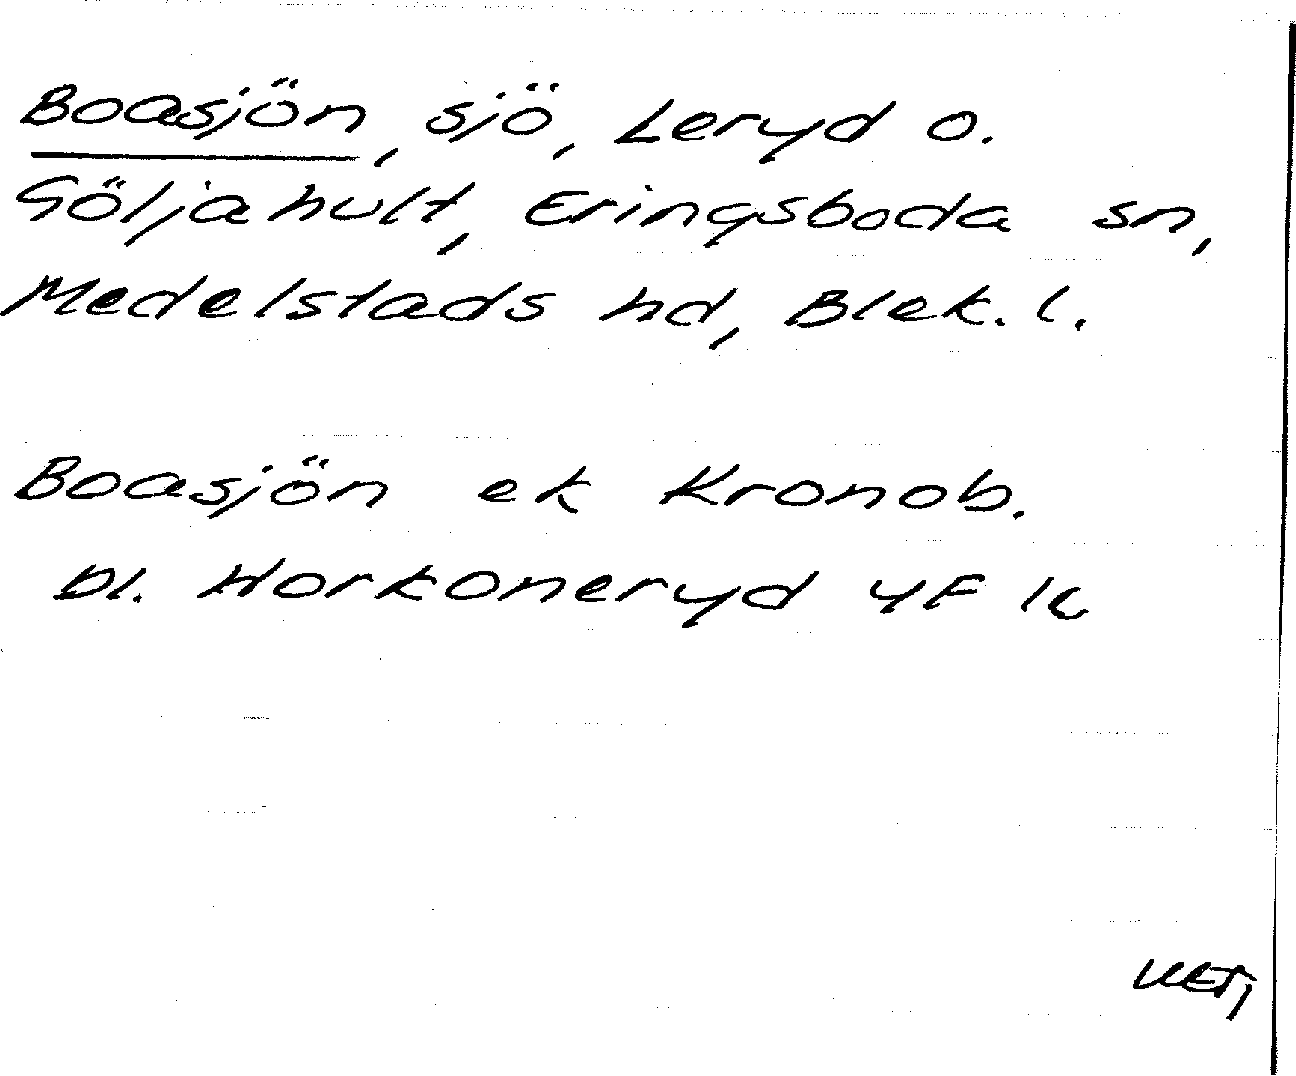 Boasjön, sjö, Leryd o.
Göljahult, Eringsboda sn,
Medelstads hd, Blek. l.
Boasjön ek Kronob.
bl. Horkoneryd 4F